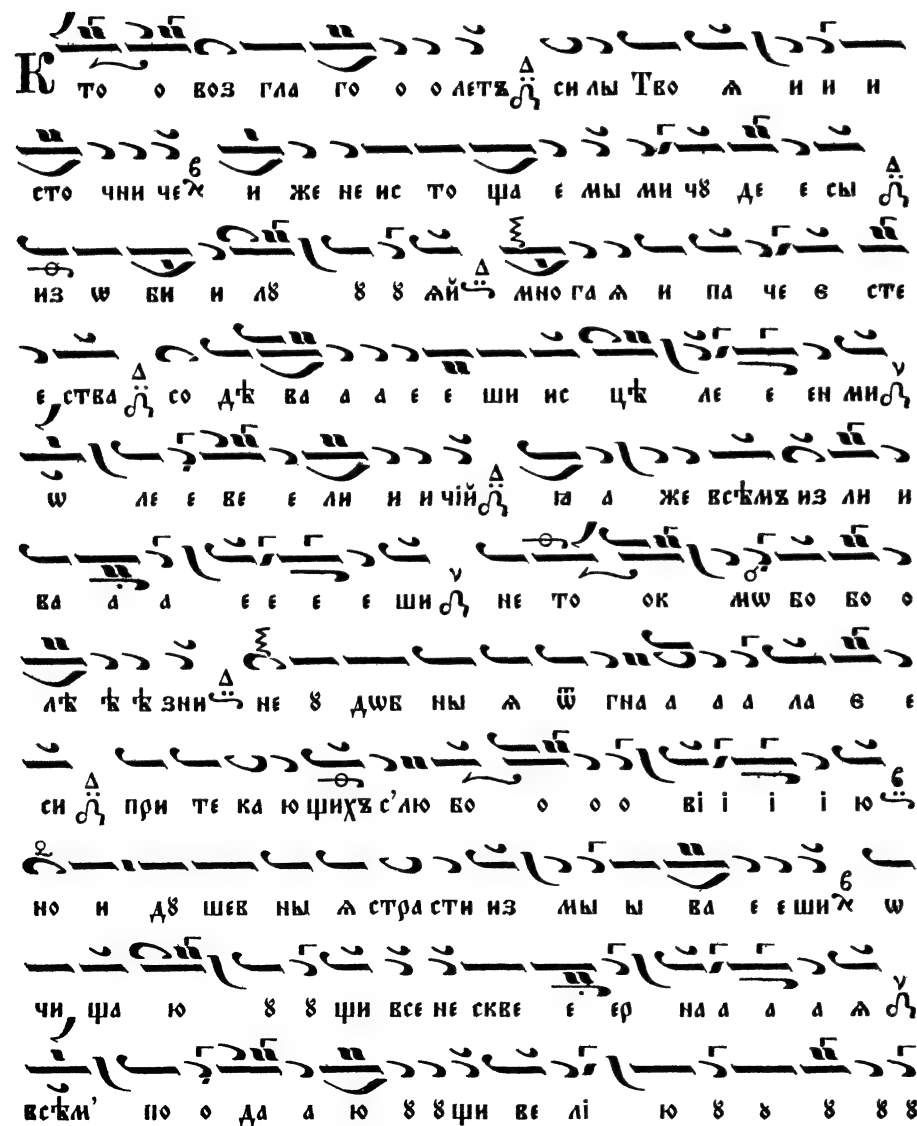 К то о воз гла го о о летъ си лы Тво ѧ и и и
сто чни че и же не ис то ща е мы ми чꙋ де е сы
из ѡ би и лꙋ ꙋ ꙋ ѧй мно га ѧ и па че є сте
е ства со дѣ ва а а е е ши ис цѣ ле е ен ми
ѡ ле е ве е ли и и чїй ꙗ а же всѣмъ из ли и
ва а а е е е е ши не то ок мѡ во во о
лѣ ѣ ѣ зни не ꙋ дѡб ны ѧ ѿ гна а а а ла є е
си при те ка ю щихъ с’лю бо о о о ві і і і ю
но и дꙋ шев ны ѧ стра сти из мы ы ва е е ши ѡ
чи ща ю ꙋ ꙋ щи все не скве е ер на а а а ѧ
всѣм’ по о да а ю ꙋ ꙋ щи ве лі ю ꙋ ꙋ ꙋ ꙋ ꙋ